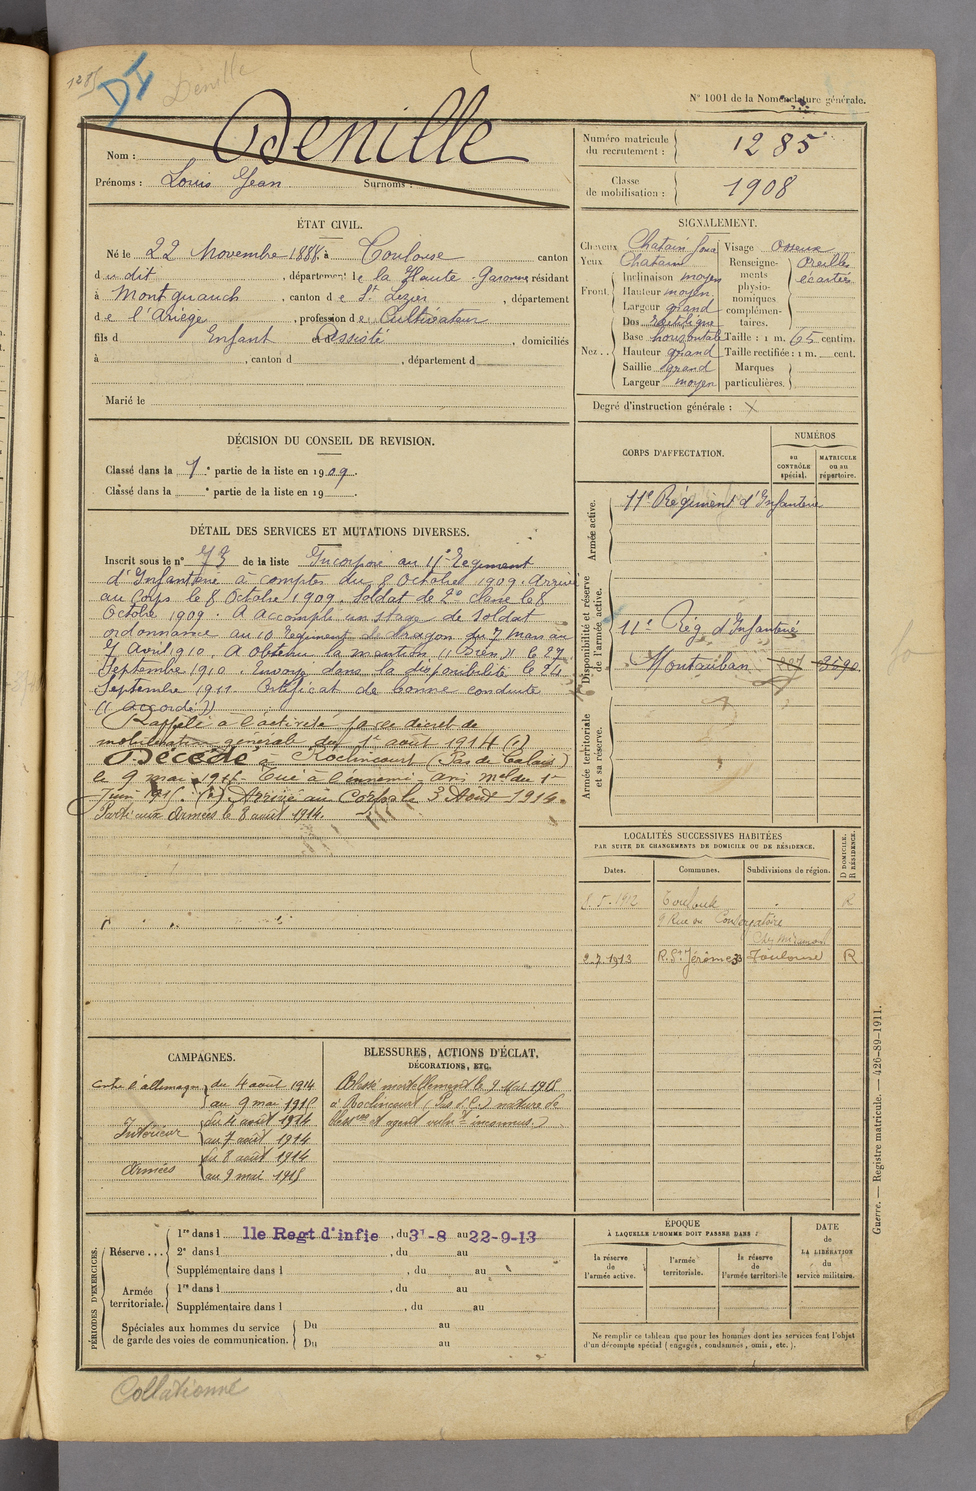 1285
DI
Dénille
N° 1001 de la Nomenclature générale.
Nom : Dénille
Prénoms : Louis Jean Surnoms :
Numéro matricule du recrutement : 1285
Classe de mobilisation : 1908
ÉTAT CIVIL.
Né le 22 Novembre 1888, à Toulouse canton
du dit, département de la Haute-Garonne, résidant
à Montgauch, canton de St Lizier, département
de l'Ariège, profession de Cultivateur
fils d Enfant et d Assisté, domiciliés
à , canton d , département d
Marié le
SIGNALEMENT.
Cheveux Chatain foncé
Yeux Chatain
Front Inclinaison moyen
Hauteur moyen
Largeur grand
Nez Dos rectiligne
Base horizontale
Hauteur grand
Saillie grand
Largeur moyen
Visage Osseux
Renseignements physionomiques complémentaires. Oreilles écartées
Taille : 1 m. 65 centim.
Taille rectifiée : 1 m. cent.
Marques particulières.
Degré d'instruction générale : X
DÉCISION DU CONSEIL DE REVISION.
Classé dans la 1e partie de la liste en 1909.
Classé dans la e partie de la liste en 19 .
DÉTAIL DES SERVICES ET MUTATIONS DIVERSES.
Inscrit sous le n° 73 de la liste Incorporé au 11e Régiment
d'Infanterie à compter du 8 Octobre 1909. Arrivé
au Corps le 8 Octobre 1909. Soldat de 2e classe le 8
Octobre 1909. A accompli un stage de Soldat
ordonnance au 10 Régiment de dragon du 7 mars au
7 Avril 1910. A obtenu la mention "Bien" le 27
Septembre 1910. Envoyé dans la disponibilité le 24
Septembre 1911. Certificat de bonne conduite
"Accordé"
Rappelé à l'activité par le décret de
mobilisation générale du 1er août 1914 (1)
Décédé à Roclincourt (Pas de Calais)
le 9 mai 1915 Tué à l'ennemi. Avis mel du 1er
Juin 1915. (1) Arrivé au Corps le 3 Août 1914.
Parti aux Armées le 8 août 1914.
CORPS D'AFFECTATION.
NUMÉROS
au CONTRÔLE spécial.
MATRICULE ou au répertoire.
Armée active.
11e Régiment d'Infanterie
Disponibilité et réserve de l'armée active.
11e Rég. d'Infanterie
Montauban
Armée territoriale et sa réserve.
LOCALITÉS SUCCESSIVES HABITÉES
PAR SUITE DE CHANGEMENTS DE DOMICILE OU DE RÉSIDENCE.
Dates. Communes. Subdivisions de région. D DOMICILE. R RÉSIDENCE.
1.5.1912 Toulouse R
9 Rue du Conservatoire
2.7.1913 R. St Jérôme 33 Toulouse R
CAMPAGNES.
Contre l'allemagne du 4 août 1914
au 9 mai 1915
Intérieur du 4 août 1914
au 7 août 1914
Armées du 8 août 1914
au 9 mai 1915
BLESSURES, ACTIONS D'ÉCLAT, DÉCORATIONS, ETC.
Blessé mortellement le 9 Mai 1915
à Roclincourt (Pas d. C.) nature de
blessure et agent vulnt inconnus.
PÉRIODES D'EXERCICES.
Réserve ... 1re dans l 11e Regt d'infie, du 31-8 au 22-9-13
2e dans l , du au
Supplémentaire dans l , du au
Armée territoriale. 1re dans l , du au
Supplémentaire dans l , du au
Spéciales aux hommes du service de garde des voies de communication. Du au
Du au
ÉPOQUE
À LAQUELLE L'HOMME DOIT PASSER DANS :
la réserve de l'armée active.
l'armée territoriale.
la réserve de l'armée territoriale
DATE DE LA LIBÉRATION du service militaire.
Ne remplir ce tableau que pour les hommes dont les services font l'objet
d'un décompte spécial (engagés, condamnés, omis, etc.).
Guerre. — Registre matricule. — 426-89-1911.
Collationné